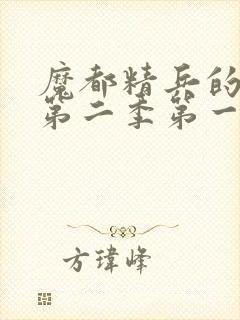 魔都精兵的
第二季第一
方瑋峰